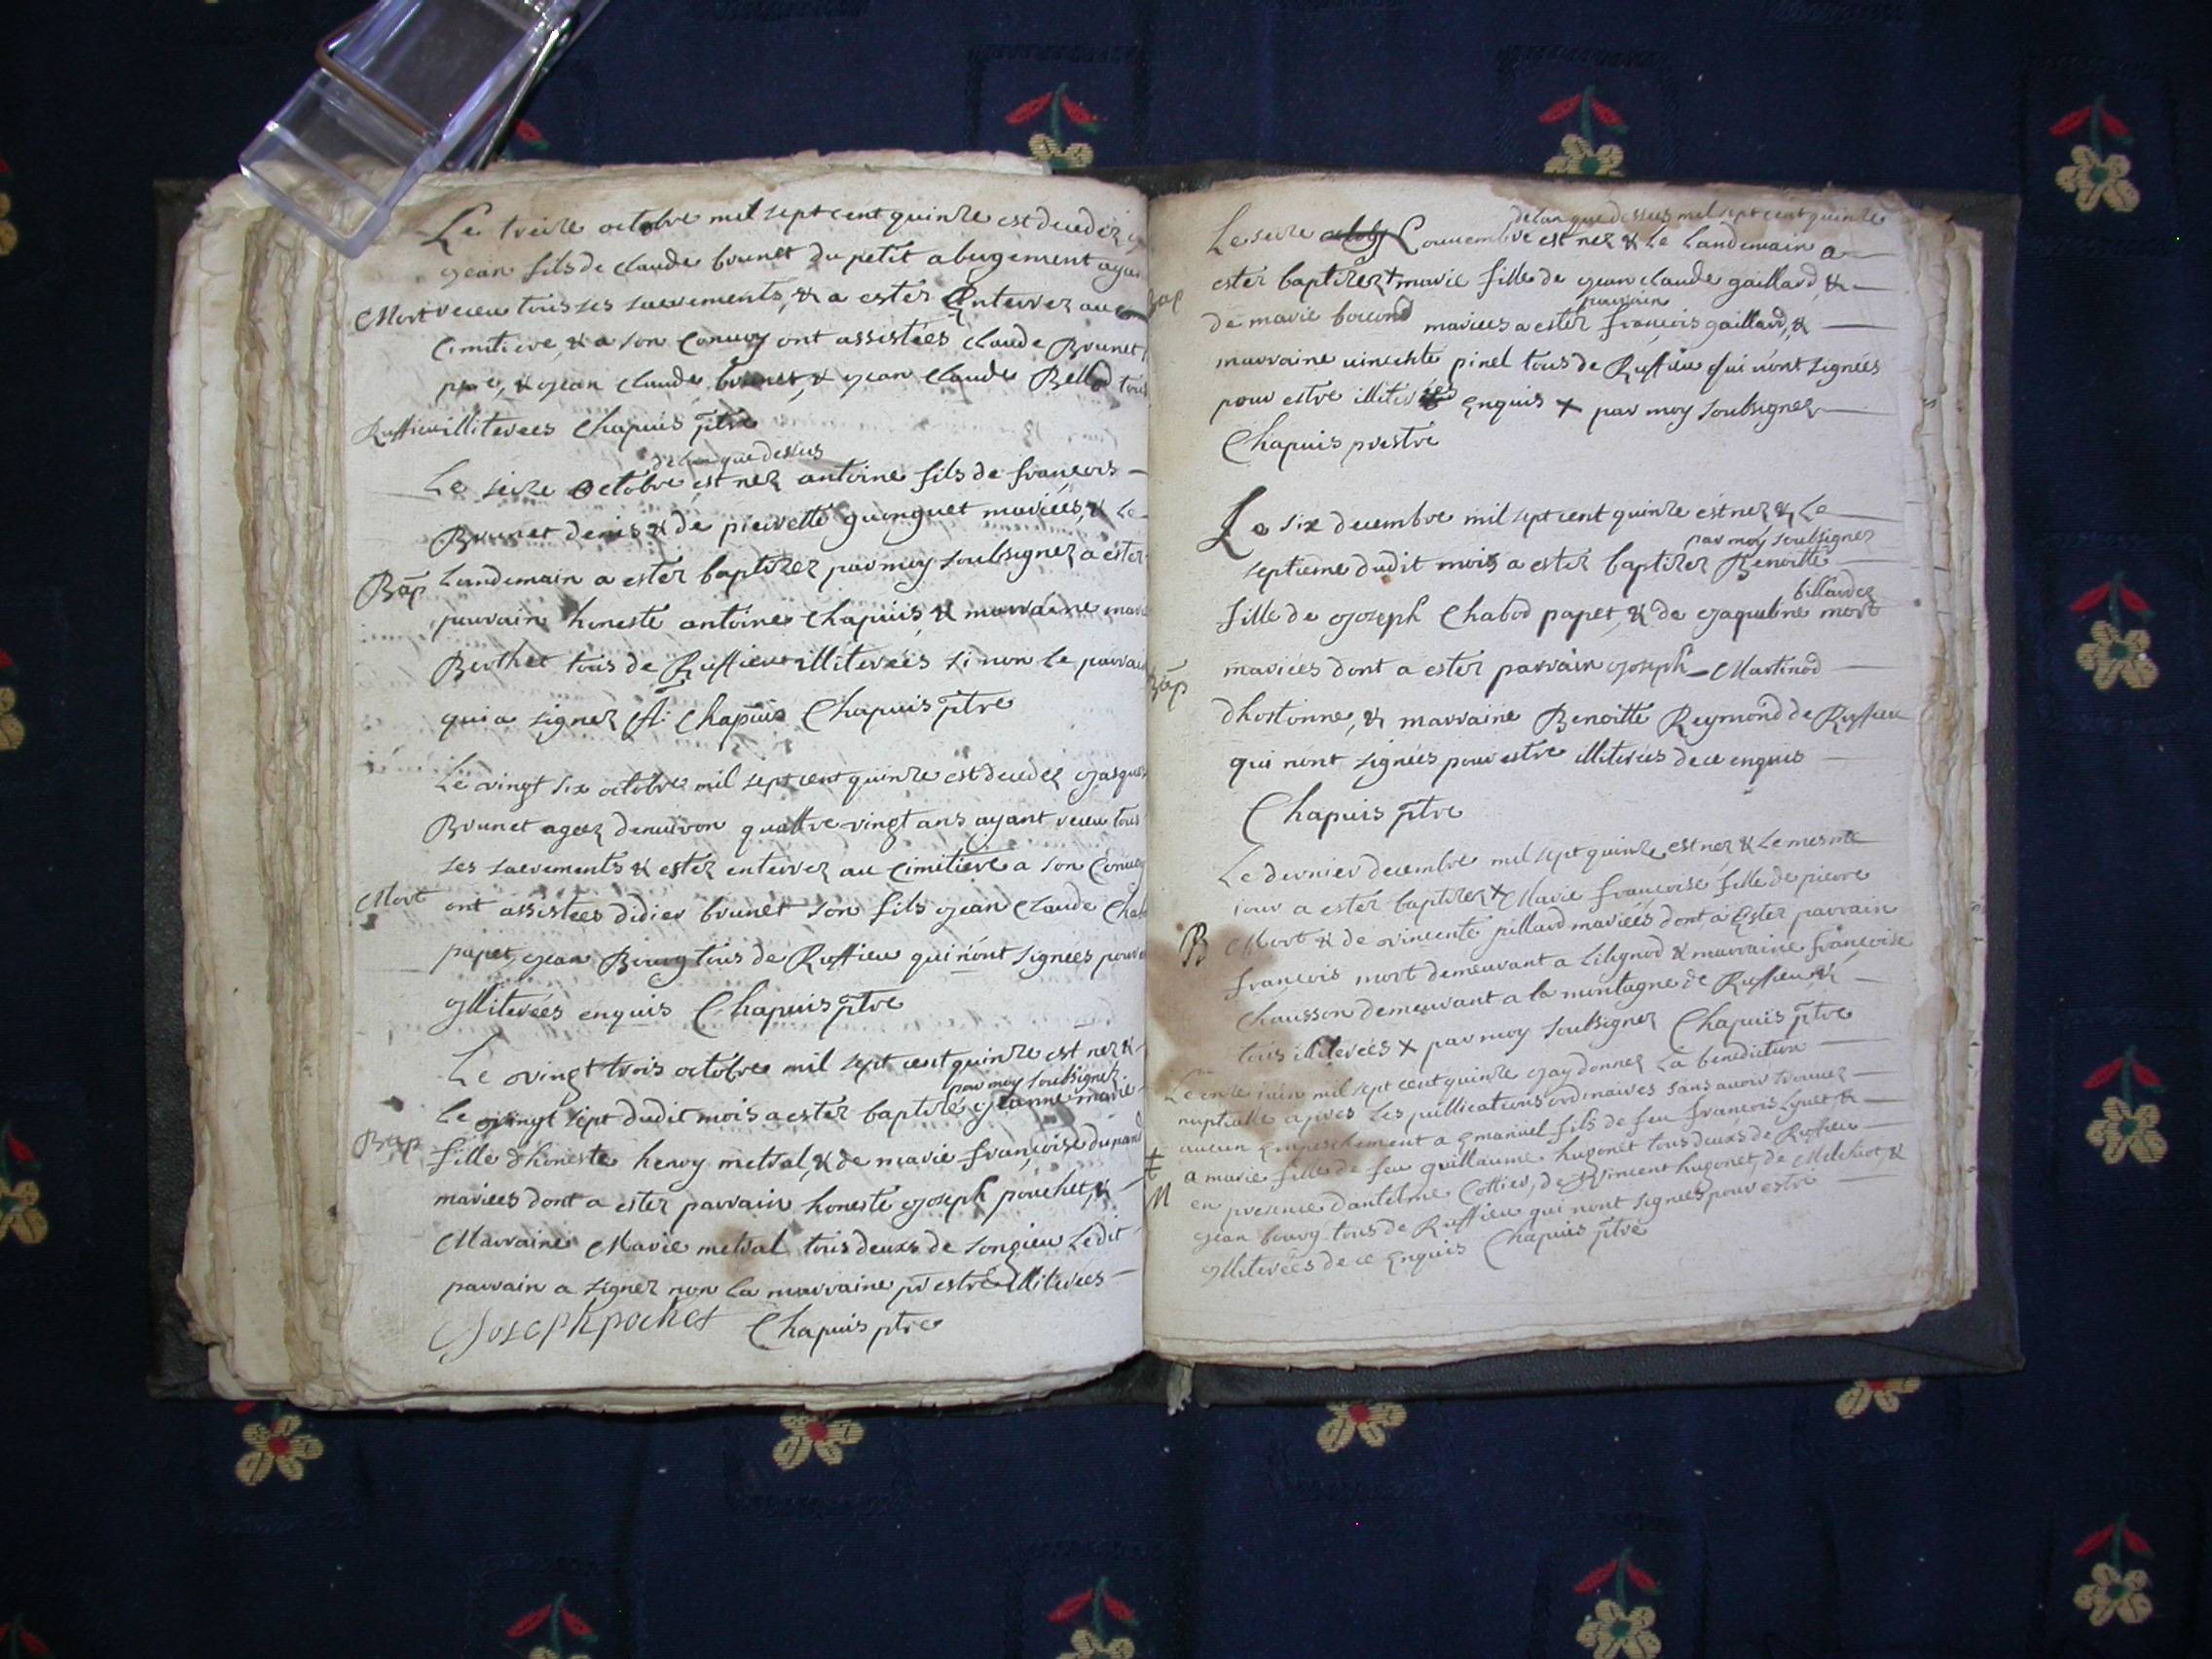 Le treize octobre mil sept cent quinze est decedez
jean fils de claude brunet du petit abergement ayan
Mort
receu tous ses sacrements, & a ester Enterrez au
Cimitiere, & a son Convoy ont assistées claude Brunet
pere, & jean claude brunet, & jean claude Bellod tous
Ruffieu illiterees Chapuis ptre
de lan que dessus
Le seize Octobre est nez antoine fils de françois
Brunet denis & de pierrette guinguet mariées, & Le
Bap
Landemain a ester baptizez par moy soubsignez a ester
parrain honeste antoine Chapuis, & marraine marie
Berthet tous de Ruffieu illiterées si non le parrain
qui a signez A: Chapuis Chapuis ptre
Le vingt six octobre mil sept cent quinze est decedez jasques
Brunet agez denviron quattre vingt ans ayant receu tous
ses sacrements & ester enterrez au Cimitiere a son Convoy
Mort
ont assistees didier brunet son fils jean Claude Chab
papet, jean Bourg tous de Ruffieu qui n'ont signées pour
jlliterées enquis Chapuis ptre
Le vingt trois octobre mil sept cent quinze est nez &
par moy soubsignez
Le vingt sept dudit mois a ester baptizé jeanne marie
Bap
fille dhoneste henry metral, & de marie françoise dupan
mariees dont a ester parrain honeste joseph pouchet, &
Marraine Marie metral tous deuxs de songieu Ledit
parrain a signez non la marraine pr estre illiterees
Joseph pochet Chapuis ptre
de lan que dessus mil sept cent quinze
Le seize novembre est nez & Le Landemain a
Bap
ester baptizez + marie fille de jean claude gaillard, &
parrain
de marie boicond mariees a ester françois gaillard, &
marraine vincente pinel tous de Ruffieu qui n'ont signées
pour estre illiterées Enquis + par moy soubsignez
Chapuis prestre
Le six decembre mil sept cent quinze est nez & Le
par moy soubsignez
septieme dudit mois a ester baptizez Benoitte
billardez
fille de joseph Chabod papet, & de jaqueline mort
Bap
mariees dont a ester parrain joseph Martinod
dhostonne, & marraine Benoitte Reymond de Ruffieu
qui n'ont signées pour estre illiterées de ce enquis
Chapuis ptre
Le dernier decembre mil sept quinze est nez & Le mesme
iour a ester baptizez + Marie françoise fille de pierre
B
Mort & de vincente pillard mariees dont a Ester parrain
françois mort demeurant a Lilignod & marraine françoise
Chausson demeurant a la montagne de Ruffieu, &
tous illiterées + par moy soubsignez Chapuis ptre
Le onze iuin mil sept cent quinze jay donnez La benediction
nuptialle apres Les publications ordinaires sans auoir trouuez
aucun Empeschement a Emanuel fils de feu françois Lyuet &
‡
a marie fille de feu guillaume hugonet tous deuxs de Ruffieu
M
en presence dantelme Cottier, de vincent hugonet, de Melchiot, &
jean bourg tous de Ruffieu qui nont signees pour estre
jlliterées de ce Enquis Chapuis ptre